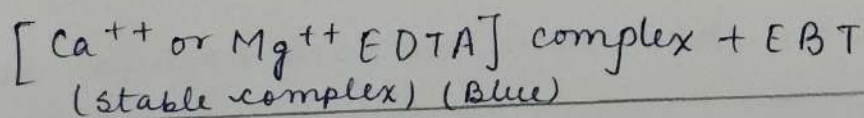 [Ca++ or Mg++ EDTA] complex + EBT
(stable complex) (Blue)